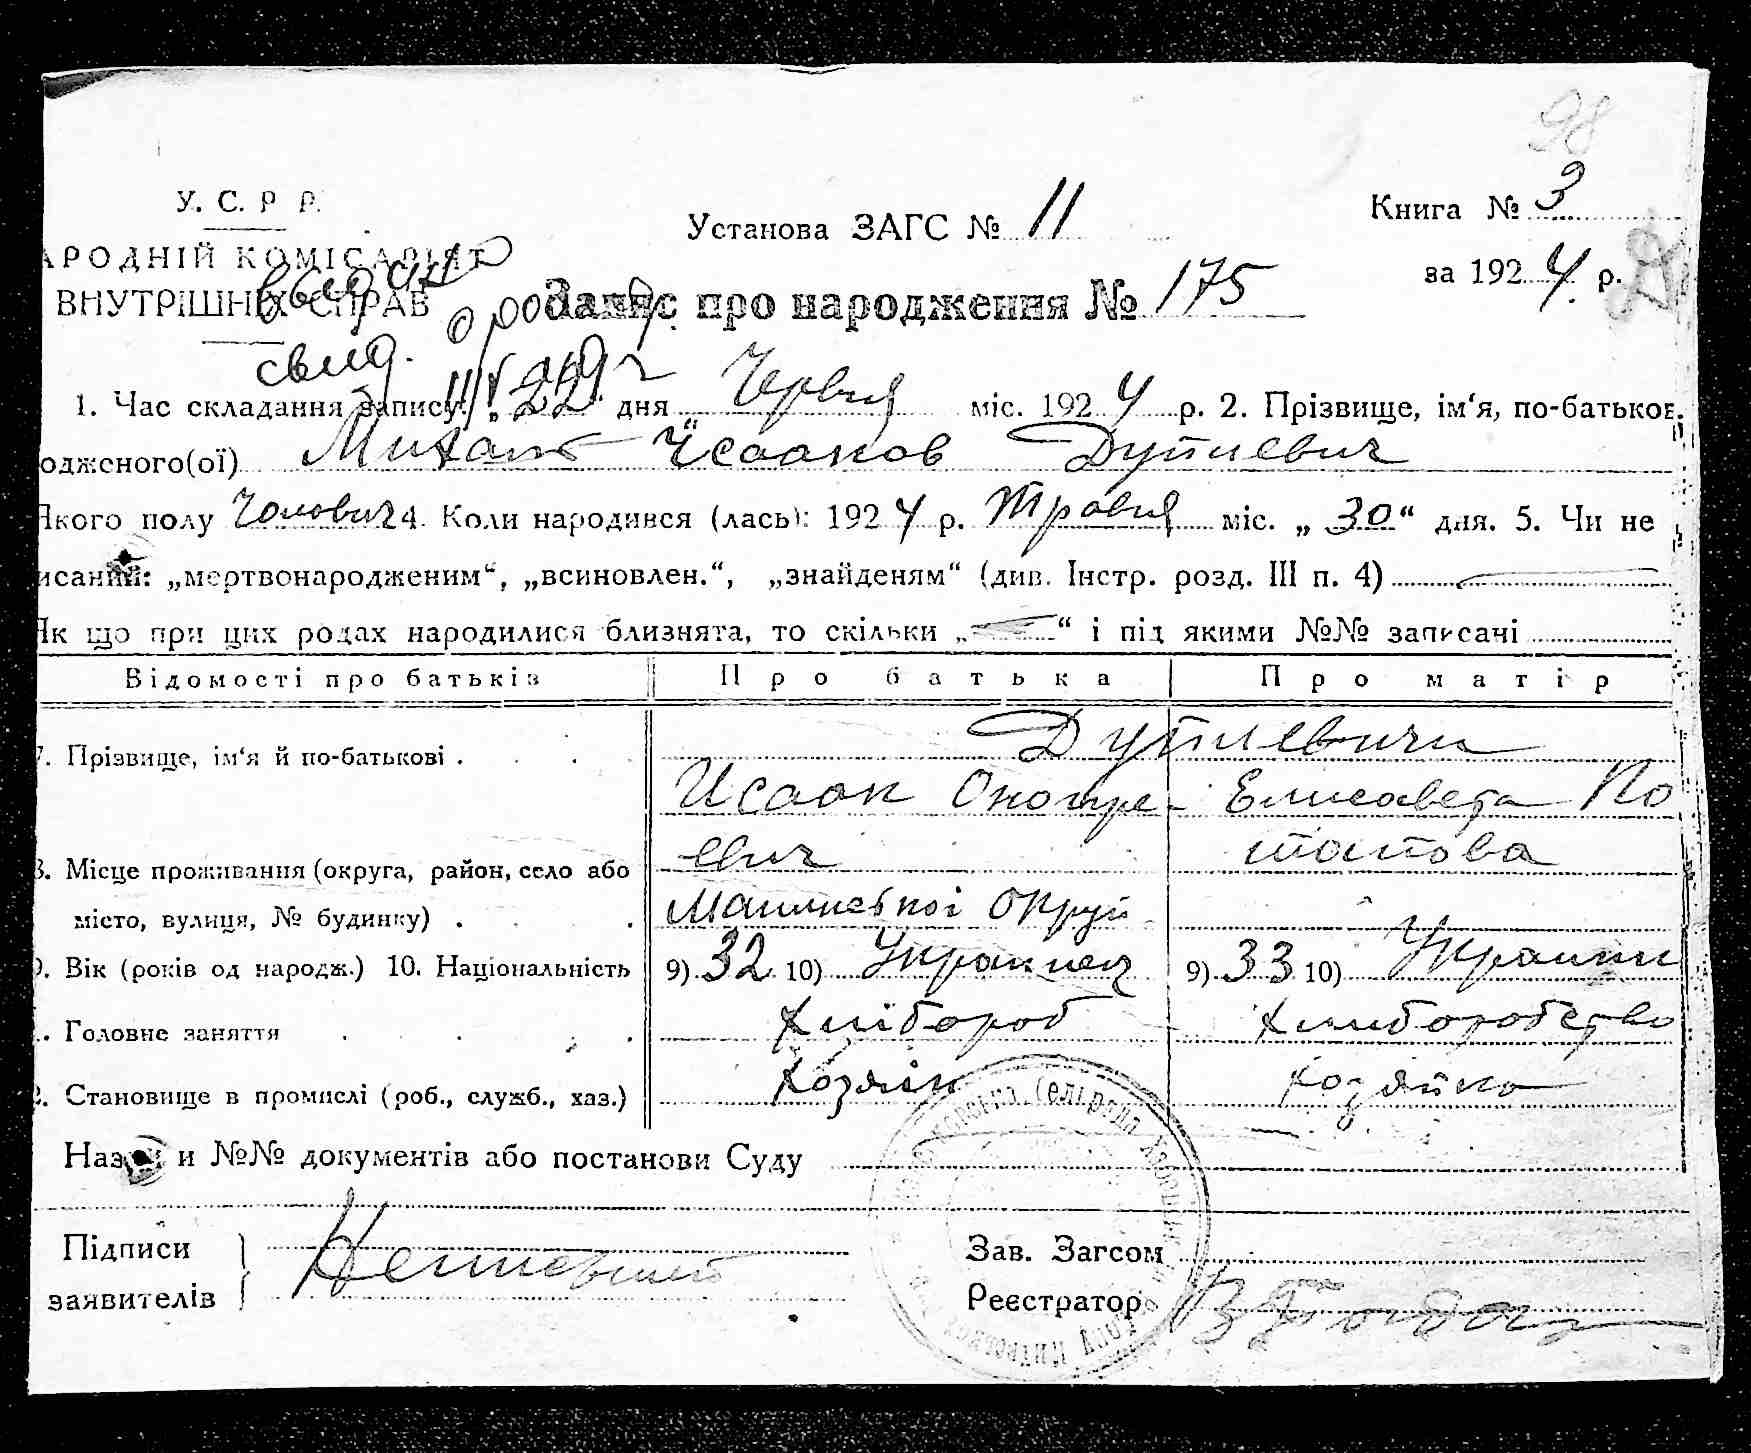 98
У. С. Р Р.
АРОДНІЙ КОМІСАРІЯТ
ВНУТРІШНІХ СПРАВ
Установа ЗАГС № 11
Книга № 3
за 1924 р.
Запис про народження № 175
свид.
1. Час складання запису: „22“ дня Червня міс. 1924 р. 2. Прізвище, ім‘я, по-батьков.
одженого(ої) Михаил Ісааков Дуплевич
Якого полу Чоловіч 4. Коли народився (лась): 1924 р. Травня міс. „30“ дня. 5. Чи не
исаний: „мертвонародженим“, „всиновлен.“, „знайденям“ (див. Інстр. розд. III п. 4)
Як що при цих родах народилися близнята, то скільки „ “ і під якими №№ записані
Відомості про батьків Про батька Про матір
7. Прізвище, ім‘я й по-батькові . . .
Дуплевичи
Исаак Онопре- Елисавета По
евич тапова
8. Місце проживання (округа, район, село або
місто, вулиця, № будинку) . .
округи
9. Вік (років од народж.) 10. Національність 9) 32 10) Українец 9) 33 10) Украин
. Головне заняття . . . . Хлібороб Хлиборобство
2. Становище в промислі (роб., служб., хаз.) Хозяін хозяйка
Назви и №№ документів або постанови Суду
Підписи
заявителів
Зав. Загсом
Реєстратор